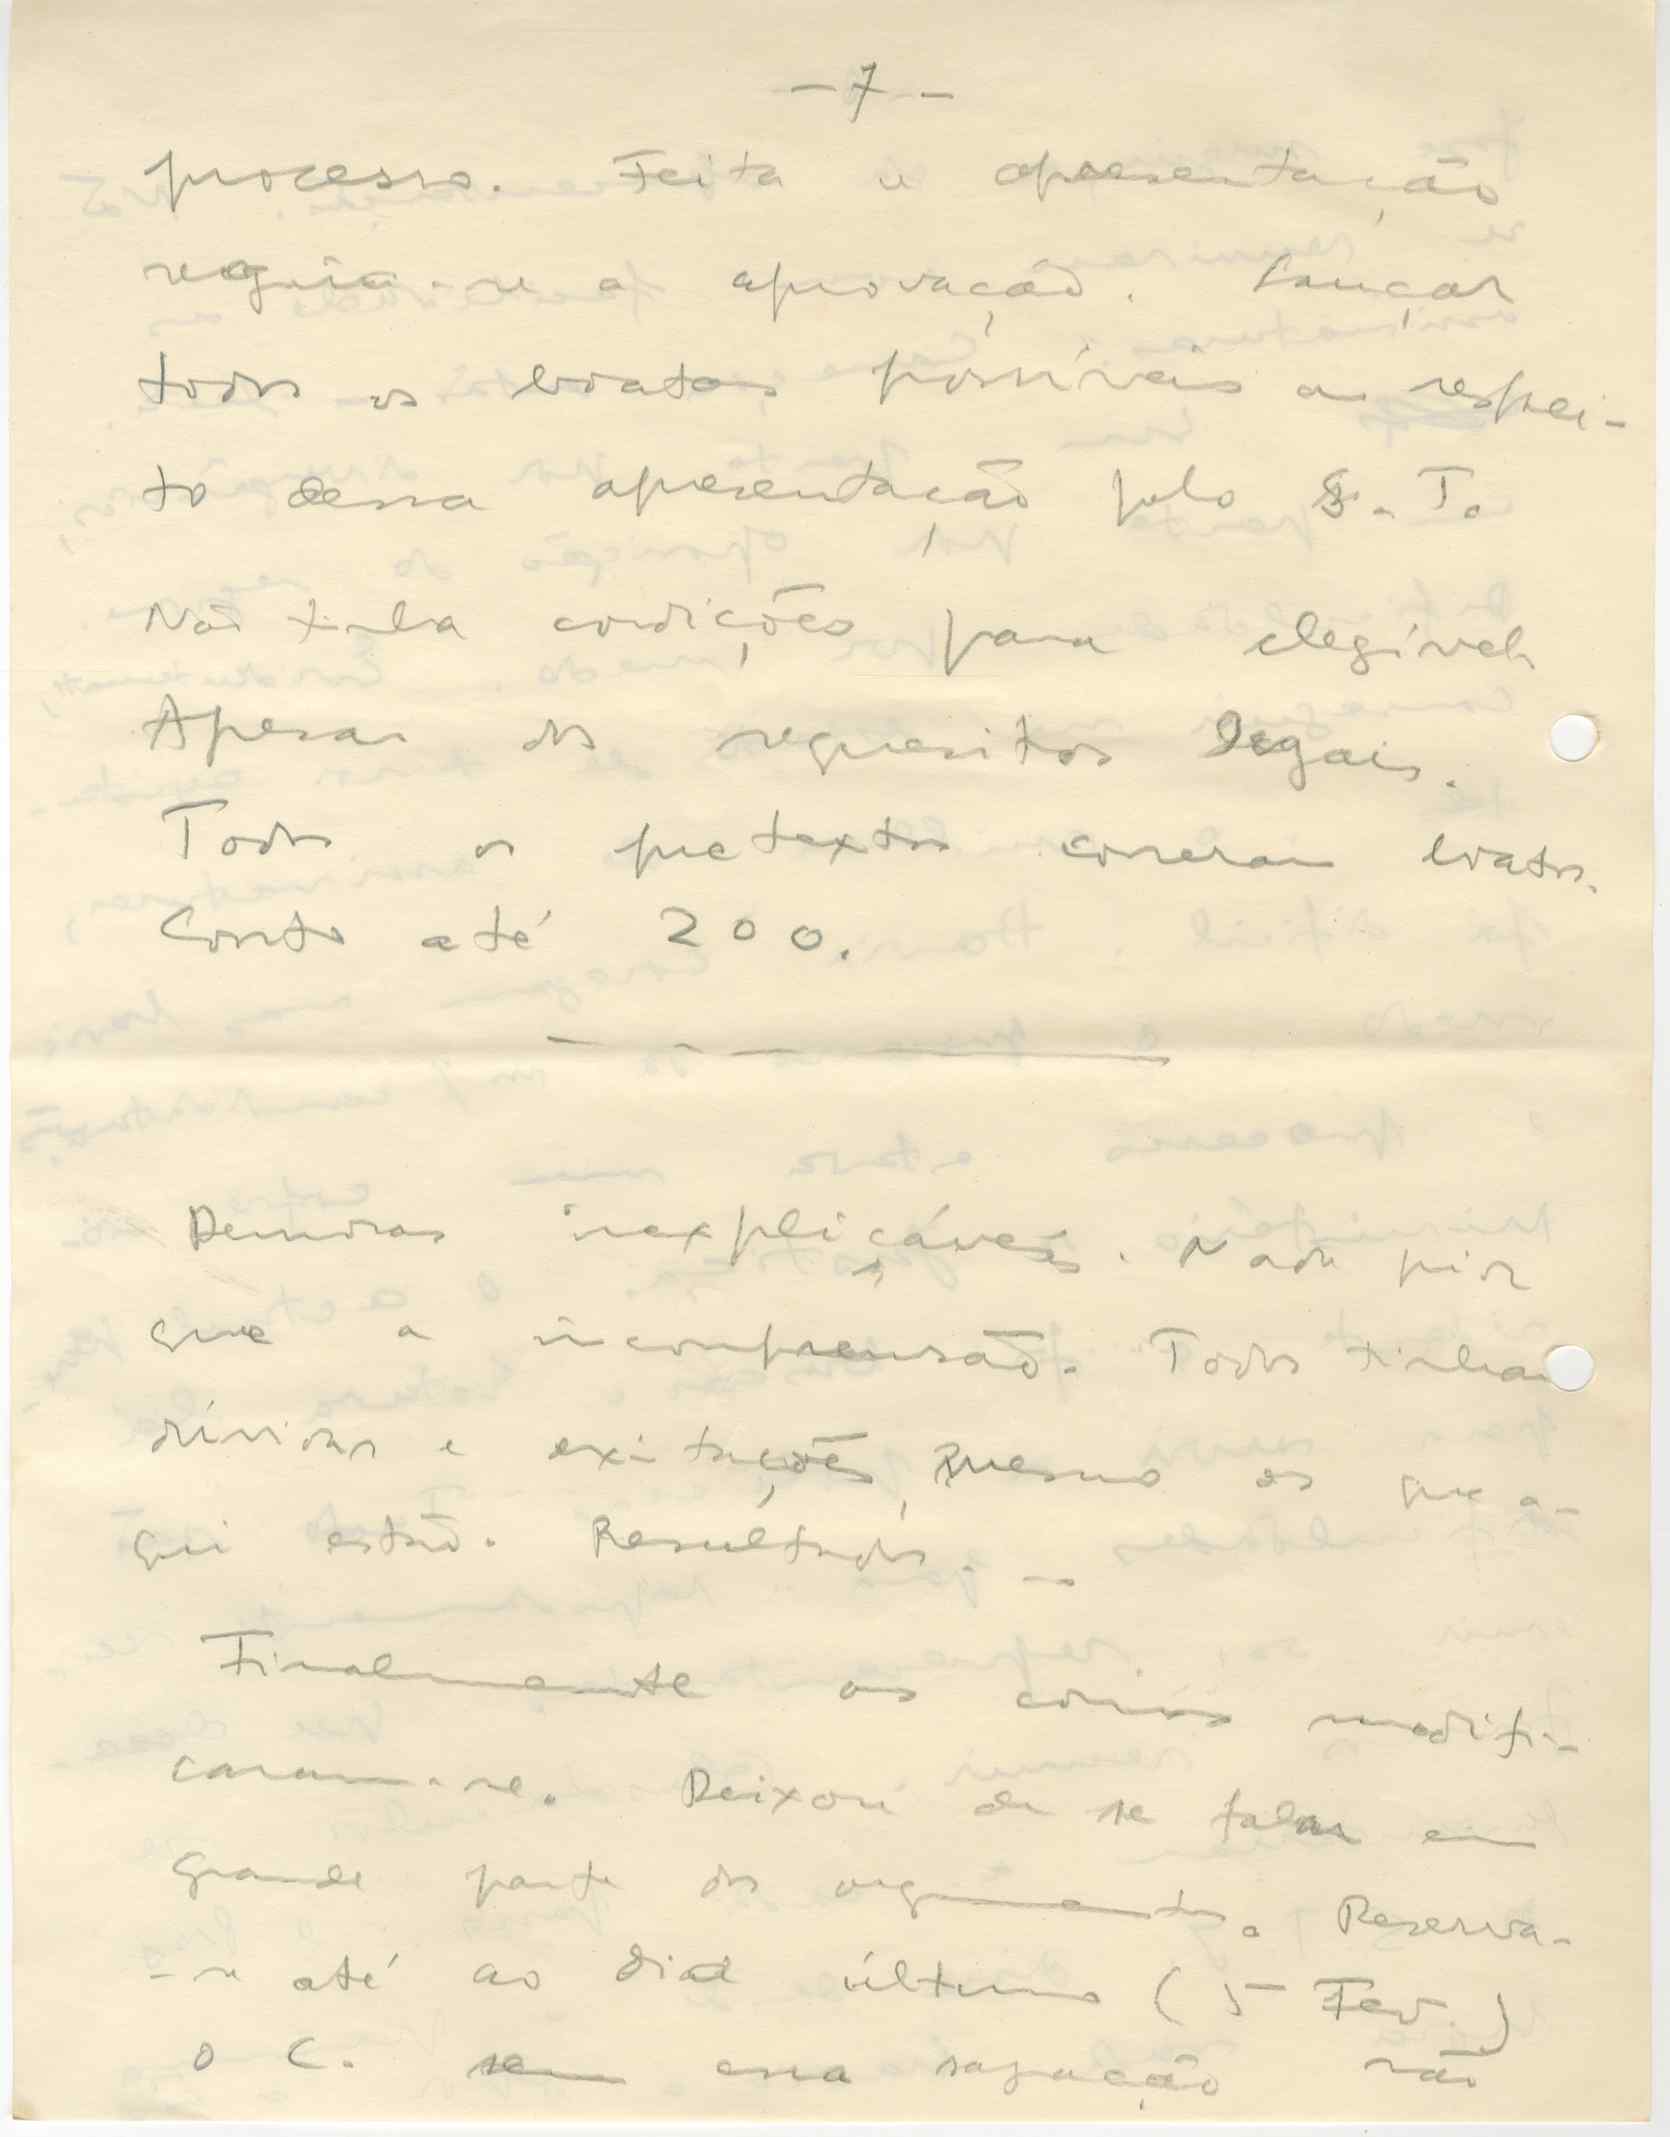 - 7 -
processo. Feita a apresentação
seguia-se a aprovação. Lançar
todos os boatos possíveis a respei-
to dessa apresentação pelo S. T.
Não tinha condições para elegível
Apesar dos requesitos legais.
Todos os pretextos correram boatos.
Conto até 200.
Demoras inexplicáveis. Nada pior
que a incomprensão. Todos tinham
dúvidas e exitações, mesmo os que a-
qui estão. Resultados. —
Finalmente as coisas modifi-
caram-se. Deixou de se falar em
grande parte dos argumentos. Reserva-
-se até ao dia último (5 Fev.)
o C. sem essa
 não